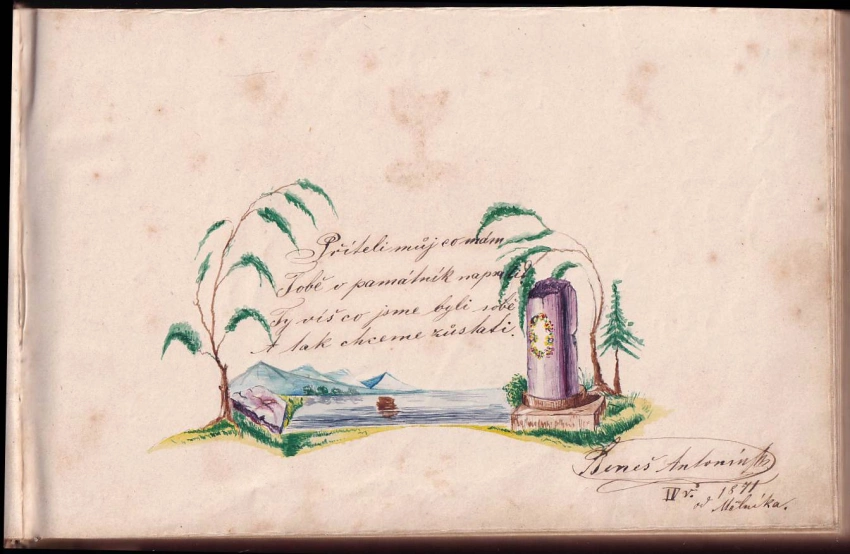 Příteli můj co mám
Tobě v památník napsati
Ty víš co jsme byli sobě
A tak chceme zůstati.
Beneš Antonín
IV r. 1871
od Mělníka.